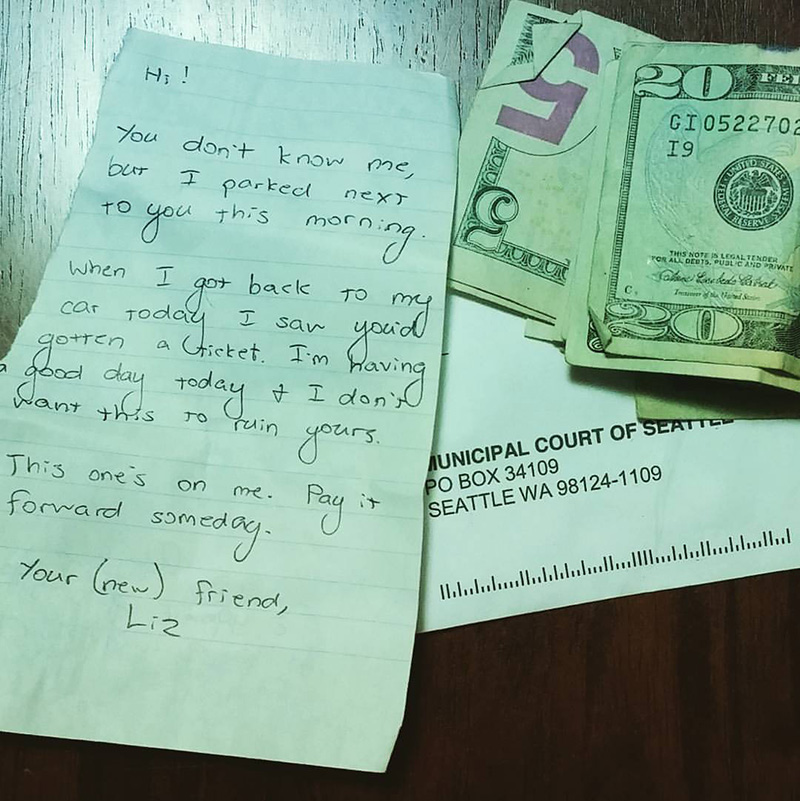 Hi!
You don't know me,
but I parked next
to you this morning.
When I got back to my
car today I saw you'd
gotten a ticket. I'm having
a good day today & I don't
want this to ruin yours.
This one's on me. Pay it
forward someday.
Your (new) friend,
Liz
5
5
20 FE
GI0522702
I9
THIS NOTE IS LEGAL TENDER
FOR ALL DEBTS, PUBLIC AND PRIVATE
Treasurer of the United States
20
MUNICIPAL COURT OF SEATTLE
PO BOX 34109
SEATTLE WA 98124-1109